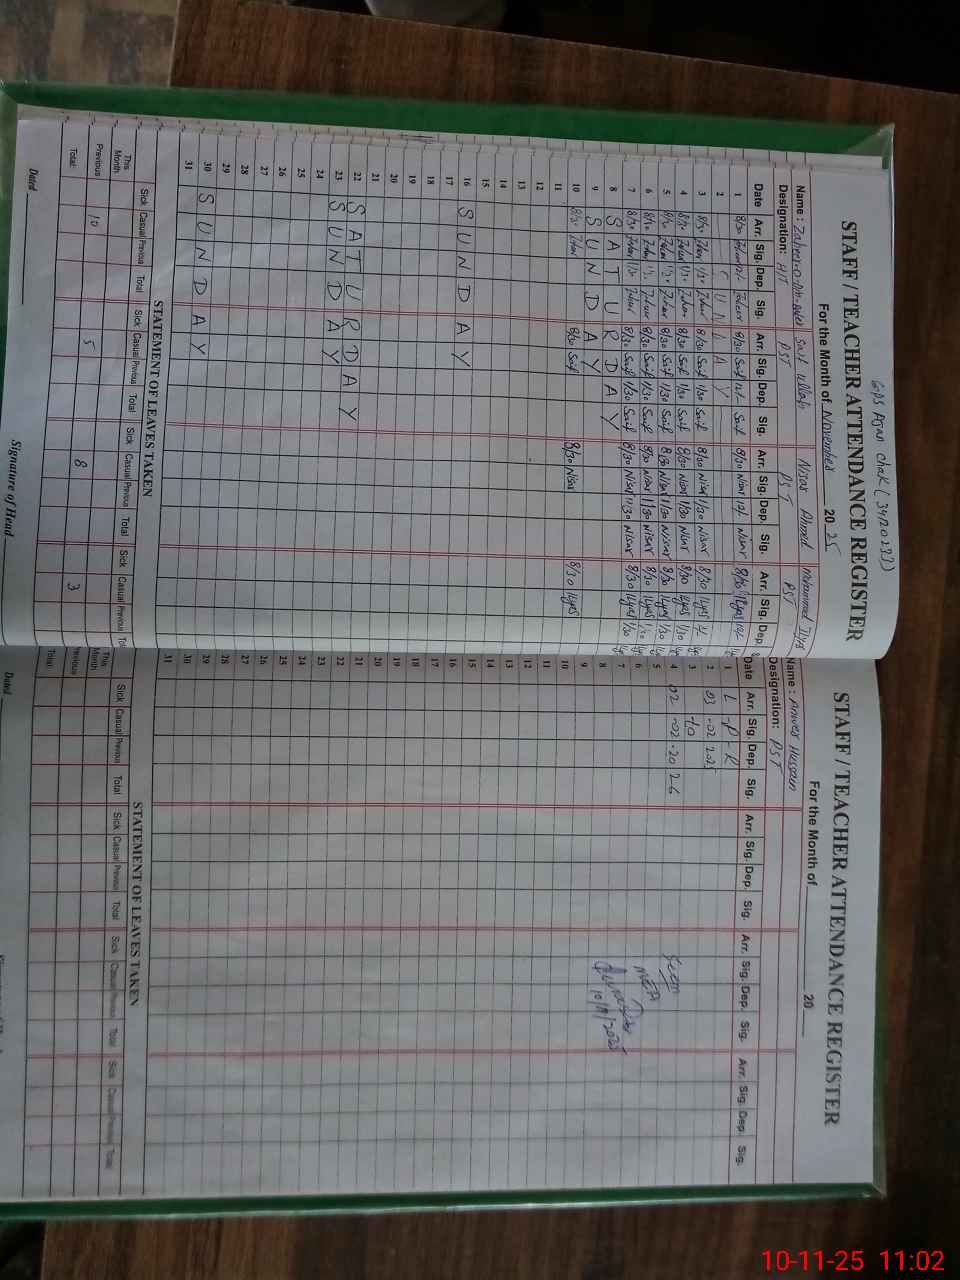 GPS Arjan Chak (
STAFF / TEACHER ATTENDANCE REGISTER
For the Month of November 2025
Name : Zaheer-o-din Saif Ullah Nisar Ahmed Mohammad Ilyas
Designation: HT PST PST PST
Date Arr. Sig. Dep. Sig. Arr. Sig. Dep. Sig. Arr. Sig. Dep. Sig. Arr. Sig. Dep.
1 8/30 Saif Saif 8/30 Nisar Nisar 8/30 Ilyas
2 S U N D A Y
3 8/30 Zaheer 1/30 Zaheer 8/30 Saif 1/30 Saif 8/30 Nisar 1/30 Nisar 8/30 Ilyas
4 8/30 Zaheer 1/30 Zaheer 8/30 Saif 1/30 Saif 8/30 Nisar 1/30 Nisar 8/30 Ilyas 1/30
5 8/30 Zaheer 1/30 Zaheer 8/30 Saif 1/30 Saif 8/30 Nisar 1/30 Nisar 8/30 Ilyas 1/30
6 8/30 Zaheer 1/30 Zaheer 8/30 Saif 1/30 Saif 8/30 Nisar 1/30 Nisar 8/30 Ilyas 1/30
7 8/30 Zaheer 1/30 Zaheer 8/30 Saif 1/30 Saif 8/30 Nisar 1/30 Nisar 8/30 Ilyas 1/30
8 S A T U R D A Y
9 S U N D A Y
10 8/30 Zaheer 8/30 Saif 8/30 Nisar 8/30 Ilyas
11
12
13
14
15
16 S U N D A Y
17
18
19
20
21
22 S A T U R D A Y
23 S U N D A Y
24
25
26
27
28
29
30 S U N D A Y
31
STATEMENT OF LEAVES TAKEN
Sick Casual Previous Total Sick Casual Previous Total Sick Casual Previous Total Sick Casual Previous
This Month
Previous 10 5 8 3
Total:
Dated Signature of Head
STAFF / TEACHER ATTENDANCE REGISTER
For the Month of 20
Name : Anwer Hussain
Designation: PST
Date Arr. Sig. Dep. Sig. Arr. Sig. Dep. Sig. Arr. Sig. Dep. Sig. Arr. Sig. Dep. Sig.
1 L - P - R
2 03 -02 2025
3 -to
4 02 -02 -2026
5 Seen
6 MEA
7
8 10/11/2025
9
10
11
12
13
14
15
16
17
18
19
20
21
22
23
24
25
26
27
28
29
30
31
STATEMENT OF LEAVES TAKEN
Sick Casual Previous Total Sick Casual Previous Total Sick Casual Previous Total Sick Casual Previous Total
This Month
Previous
Total:
Dated
10-11-25 11:02